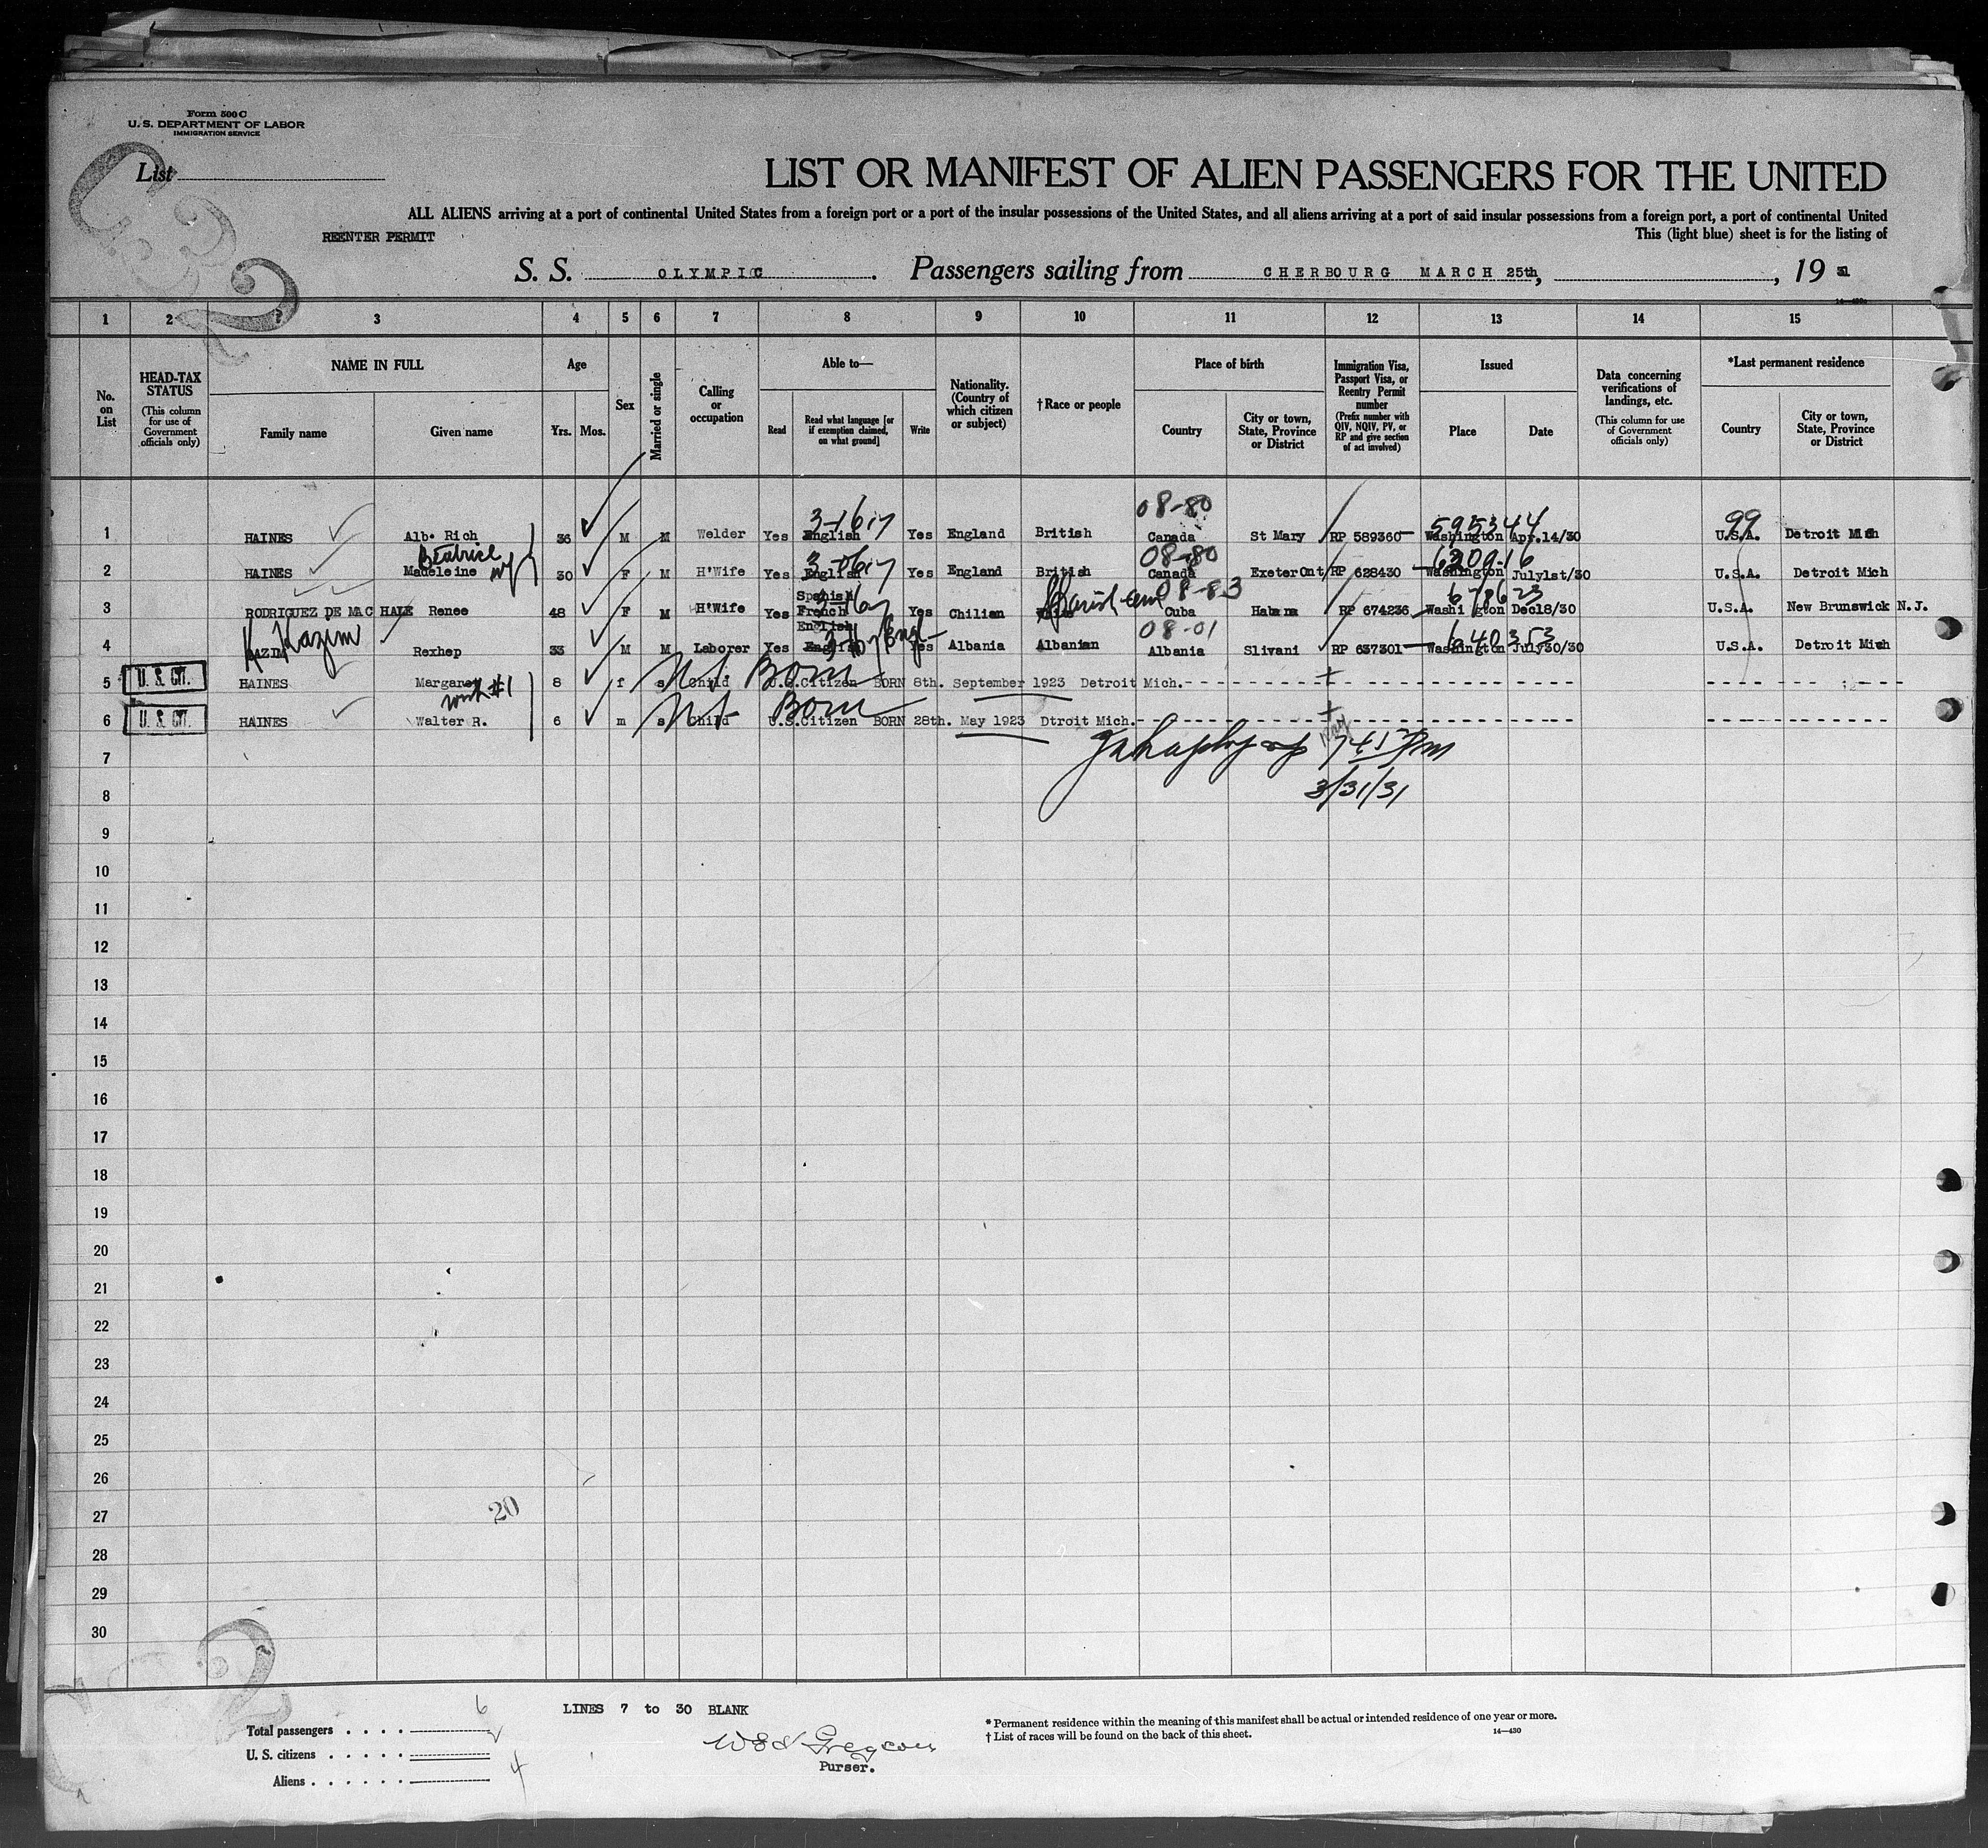 Form 500 C
U. S. DEPARTMENT OF LABOR
IMMIGRATION SERVICE
List
LIST OR MANIFEST OF ALIEN PASSENGERS FOR THE UNITED
ALL ALIENS arriving at a port of continental United States from a foreign port or a port of the insular possessions of the United States, and all aliens arriving at a port of said insular possessions from a foreign port, a port of continental United
REENTER PERMIT This (light blue) sheet is for the listing of
S. S. OLYMPIC . Passengers sailing from CHERBOURG MARCH 25th, , 19 31
1 2 3 4 5 6 7 8 9 10 11 12 13 14 15
No. on List
HEAD-TAX STATUS (This column for use of Government officials only)
NAME IN FULL Family name Given name
Age Yrs. Mos.
Sex
Married or single
Calling or occupation
Able to— Read Read what language [or if exemption claimed, on what ground] Write
Nationality. (Country of which citizen or subject)
† Race or people
Place of birth Country City or town, State, Province or District
Immigration Visa, Passport Visa, or Reentry Permit number (Prefix number with QIV, NQIV, PV, or RP and give section of act involved)
Issued Place Date
Data concerning verifications of landings, etc. (This column for use of Government officials only)
*Last permanent residence Country City or town, State, Province or District
08-80 595344 99
1 HAINES Alb. Rich 36 M M Welder Yes English Yes England British Canada St Mary RP 589360 Washington Apr.14/30 U.S.A. Detroit Mich
Beatrice 08-80
2 HAINES Madeleine 30 F M H'Wife Yes English Yes England British Canada Exeter Ont RP 628430 Washington July1st/30 U.S.A. Detroit Mich
Spanish 08-83 678623
3 RODRIGUEZ DE MAC HALE Renee 48 F M H'Wife Yes French Yes Chilian Cuba Habana RP 674236 Washington Dec18/30 U.S.A. New Brunswick N.J.
English
Kazim 08-01 640353
4 KAZIM Rexhep 33 M M Laborer Yes English Yes Albania Albanian Albania Slivani RP 637301 Washington July30/30 U.S.A. Detroit Mich
5 U. S. CIT. HAINES Margaret 8 f s Child U.S.Citizen BORN 8th. September 1923 Detroit Mich.
Born
6 U. S. CIT. HAINES Walter R. 6 m s Child U.S.Citizen BORN 28th. May 1923 Dtroit Mich.
Born
7
3/31/31
8
9
10
11
12
13
14
15
16
17
18
19
20
21
22
23
24
25
26
27
20
28
29
30
LINES 7 to 30 BLANK
Total passengers 6
U. S. citizens
Aliens 4
Purser.
* Permanent residence within the meaning of this manifest shall be actual or intended residence of one year or more.
† List of races will be found on the back of this sheet.
14—430